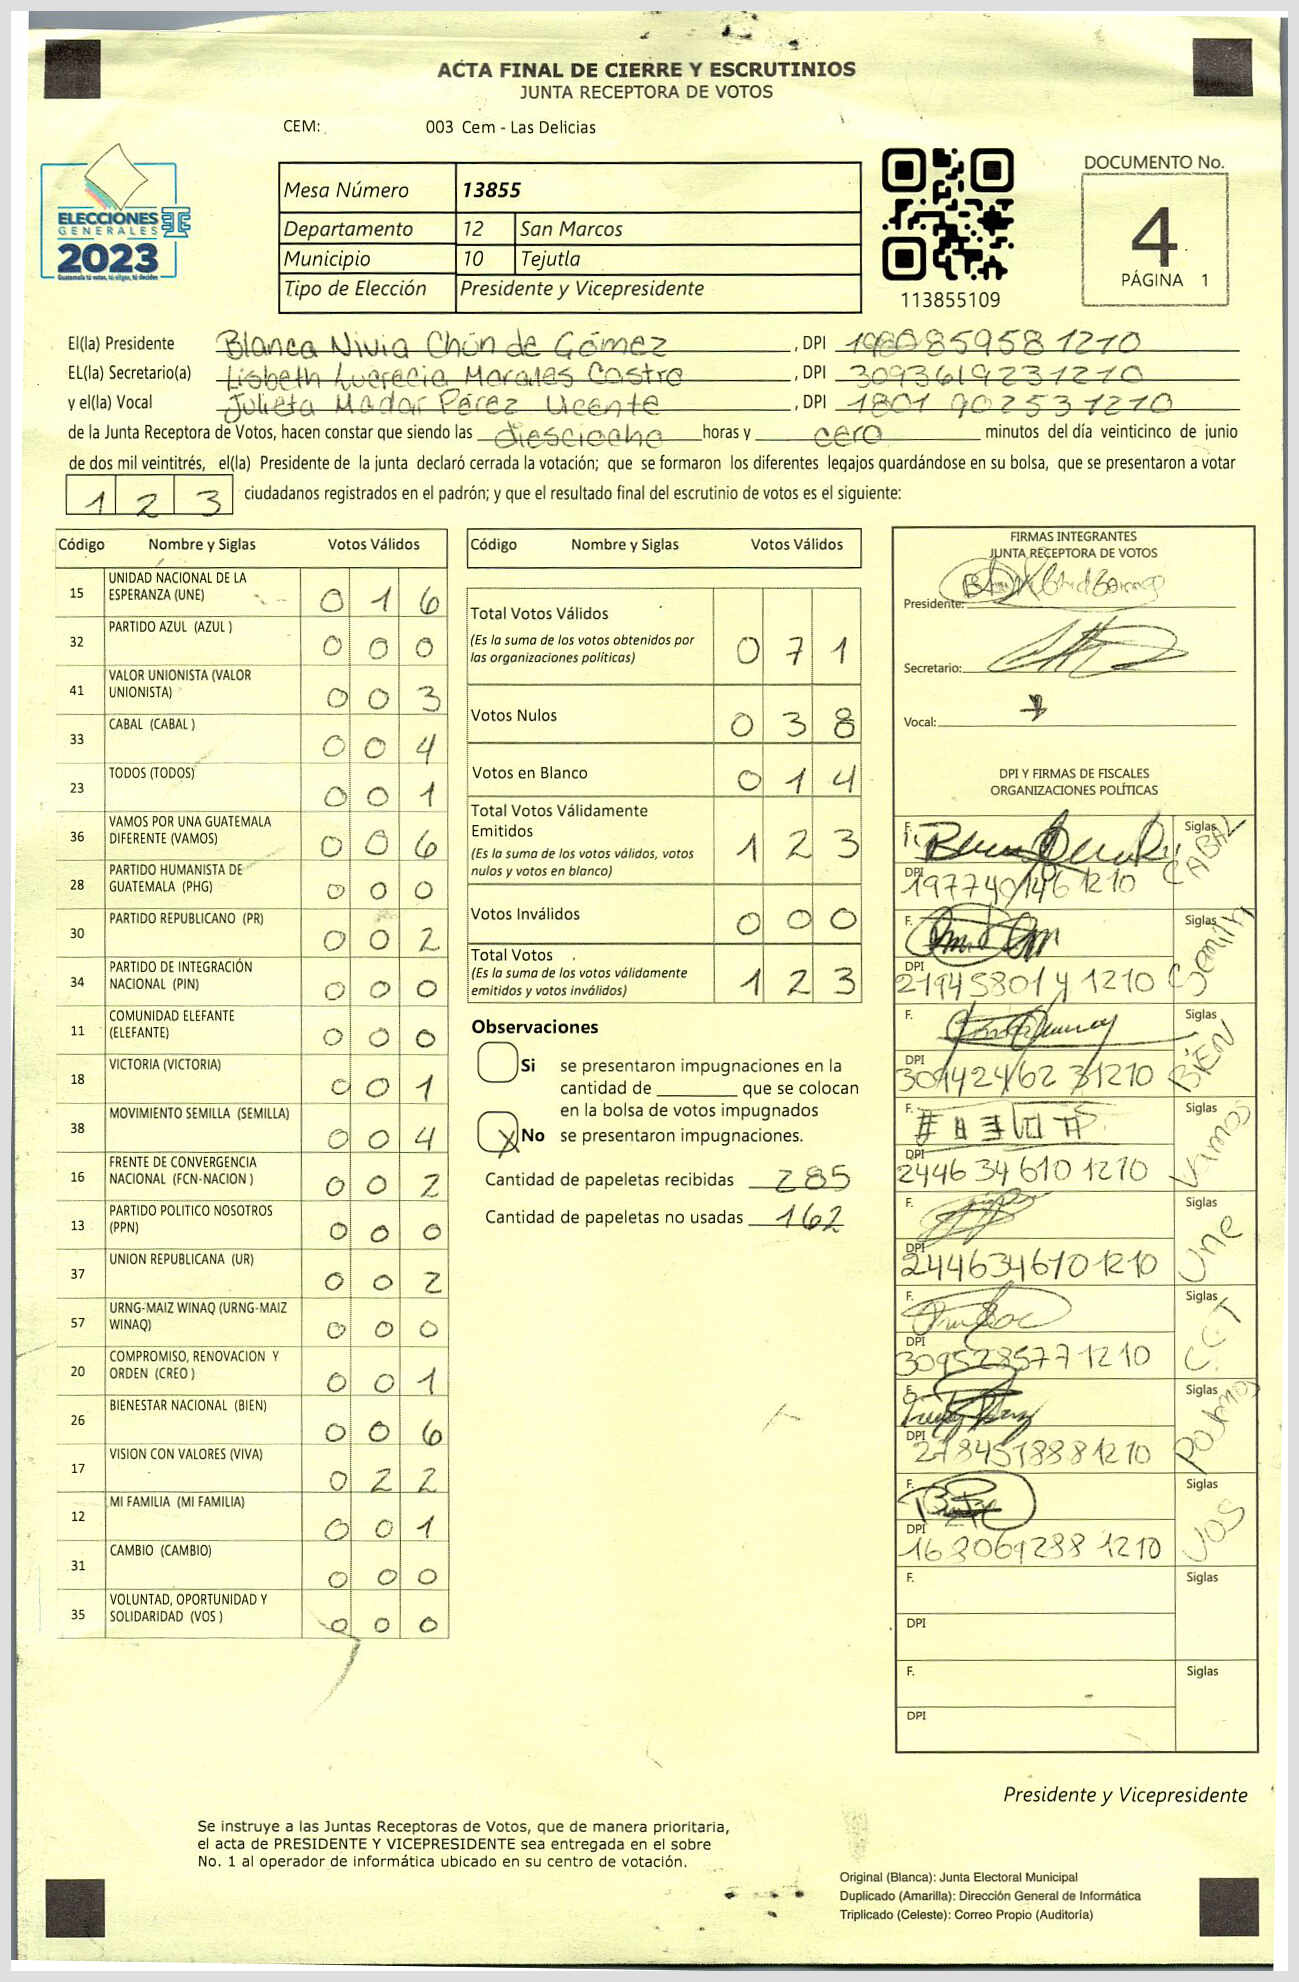 ACTA FINAL DE CIERRE Y ESCRUTINIOS
JUNTA RECEPTORA DE VOTOS
CEM: 003 Cem - Las Delicias
ELECCIONES
GENERALES
2023
Guatemala tú votas, tú eliges, tú decides
Mesa Número 13855
Departamento 12 San Marcos
Municipio 10 Tejutla
Tipo de Elección Presidente y Vicepresidente
113855109
DOCUMENTO No.
4
PÁGINA 1
El(la) Presidente Blanca Nivia Chún de Gómez , DPI 1980859581210
EL(la) Secretario(a) Lisbeth Lucrecia Morales Castro , DPI 3093619231210
y el(la) Vocal Julieta Madaí Pérez Vicente , DPI 1801902531210
de la Junta Receptora de Votos, hacen constar que siendo las diesciocho horas y cero minutos del día veinticinco de junio
de dos mil veintitrés, el(la) Presidente de la junta declaró cerrada la votación; que se formaron los diferentes legajos guardándose en su bolsa, que se presentaron a votar
1 2 3 ciudadanos registrados en el padrón; y que el resultado final del escrutinio de votos es el siguiente:
Código Nombre y Siglas Votos Válidos
15 UNIDAD NACIONAL DE LA ESPERANZA (UNE) 0 1 6
32 PARTIDO AZUL (AZUL ) 0 0 0
41 VALOR UNIONISTA (VALOR UNIONISTA) 0 0 3
33 CABAL (CABAL ) 0 0 4
23 TODOS (TODOS) 0 0 1
36 VAMOS POR UNA GUATEMALA DIFERENTE (VAMOS) 0 0 6
28 PARTIDO HUMANISTA DE GUATEMALA (PHG) 0 0 0
30 PARTIDO REPUBLICANO (PR) 0 0 2
34 PARTIDO DE INTEGRACIÓN NACIONAL (PIN) 0 0 0
11 COMUNIDAD ELEFANTE (ELEFANTE) 0 0 0
18 VICTORIA (VICTORIA) 0 0 1
38 MOVIMIENTO SEMILLA (SEMILLA) 0 0 4
16 FRENTE DE CONVERGENCIA NACIONAL (FCN-NACION ) 0 0 2
13 PARTIDO POLITICO NOSOTROS (PPN) 0 0 0
37 UNION REPUBLICANA (UR) 0 0 2
57 URNG-MAIZ WINAQ (URNG-MAIZ WINAQ) 0 0 0
20 COMPROMISO, RENOVACION Y ORDEN (CREO ) 0 0 1
26 BIENESTAR NACIONAL (BIEN) 0 0 6
17 VISION CON VALORES (VIVA) 0 2 2
12 MI FAMILIA (MI FAMILIA) 0 0 1
31 CAMBIO (CAMBIO) 0 0 0
35 VOLUNTAD, OPORTUNIDAD Y SOLIDARIDAD (VOS ) 0 0 0
Código Nombre y Siglas Votos Válidos
Total Votos Válidos 0 7 1
(Es la suma de los votos obtenidos por
las organizaciones políticas)
Votos Nulos 0 3 8
Votos en Blanco 0 1 4
Total Votos Válidamente
Emitidos 1 2 3
(Es la suma de los votos válidos, votos
nulos y votos en blanco)
Votos Inválidos 0 0 0
Total Votos 1 2 3
(Es la suma de los votos válidamente
emitidos y votos inválidos)
Observaciones
Si se presentaron impugnaciones en la
cantidad de ________ que se colocan
en la bolsa de votos impugnados
X No se presentaron impugnaciones.
Cantidad de papeletas recibidas 285
Cantidad de papeletas no usadas 162
FIRMAS INTEGRANTES
JUNTA RECEPTORA DE VOTOS
Presidente:
Secretario:
Vocal:
DPI Y FIRMAS DE FISCALES
ORGANIZACIONES POLÍTICAS
F. Siglas CABAL
DPI 1977401461210
F. Siglas Semilla
DPI 2194580141210
F. Siglas BIEN
DPI 3094246231210
F. Siglas Vamos
DPI 2446346101210
F. Siglas Une
DPI 2446346101210
F. Siglas
DPI 3095285771210
F. Siglas Podemos
DPI 2784518881210
F. Siglas VOS
DPI 1680692881210
F. Siglas
DPI
F. Siglas
DPI
Presidente y Vicepresidente
Se instruye a las Juntas Receptoras de Votos, que de manera prioritaria,
el acta de PRESIDENTE Y VICEPRESIDENTE sea entregada en el sobre
No. 1 al operador de informática ubicado en su centro de votación.
Original (Blanca): Junta Electoral Municipal
Duplicado (Amarilla): Dirección General de Informática
Triplicado (Celeste): Correo Propio (Auditoría)